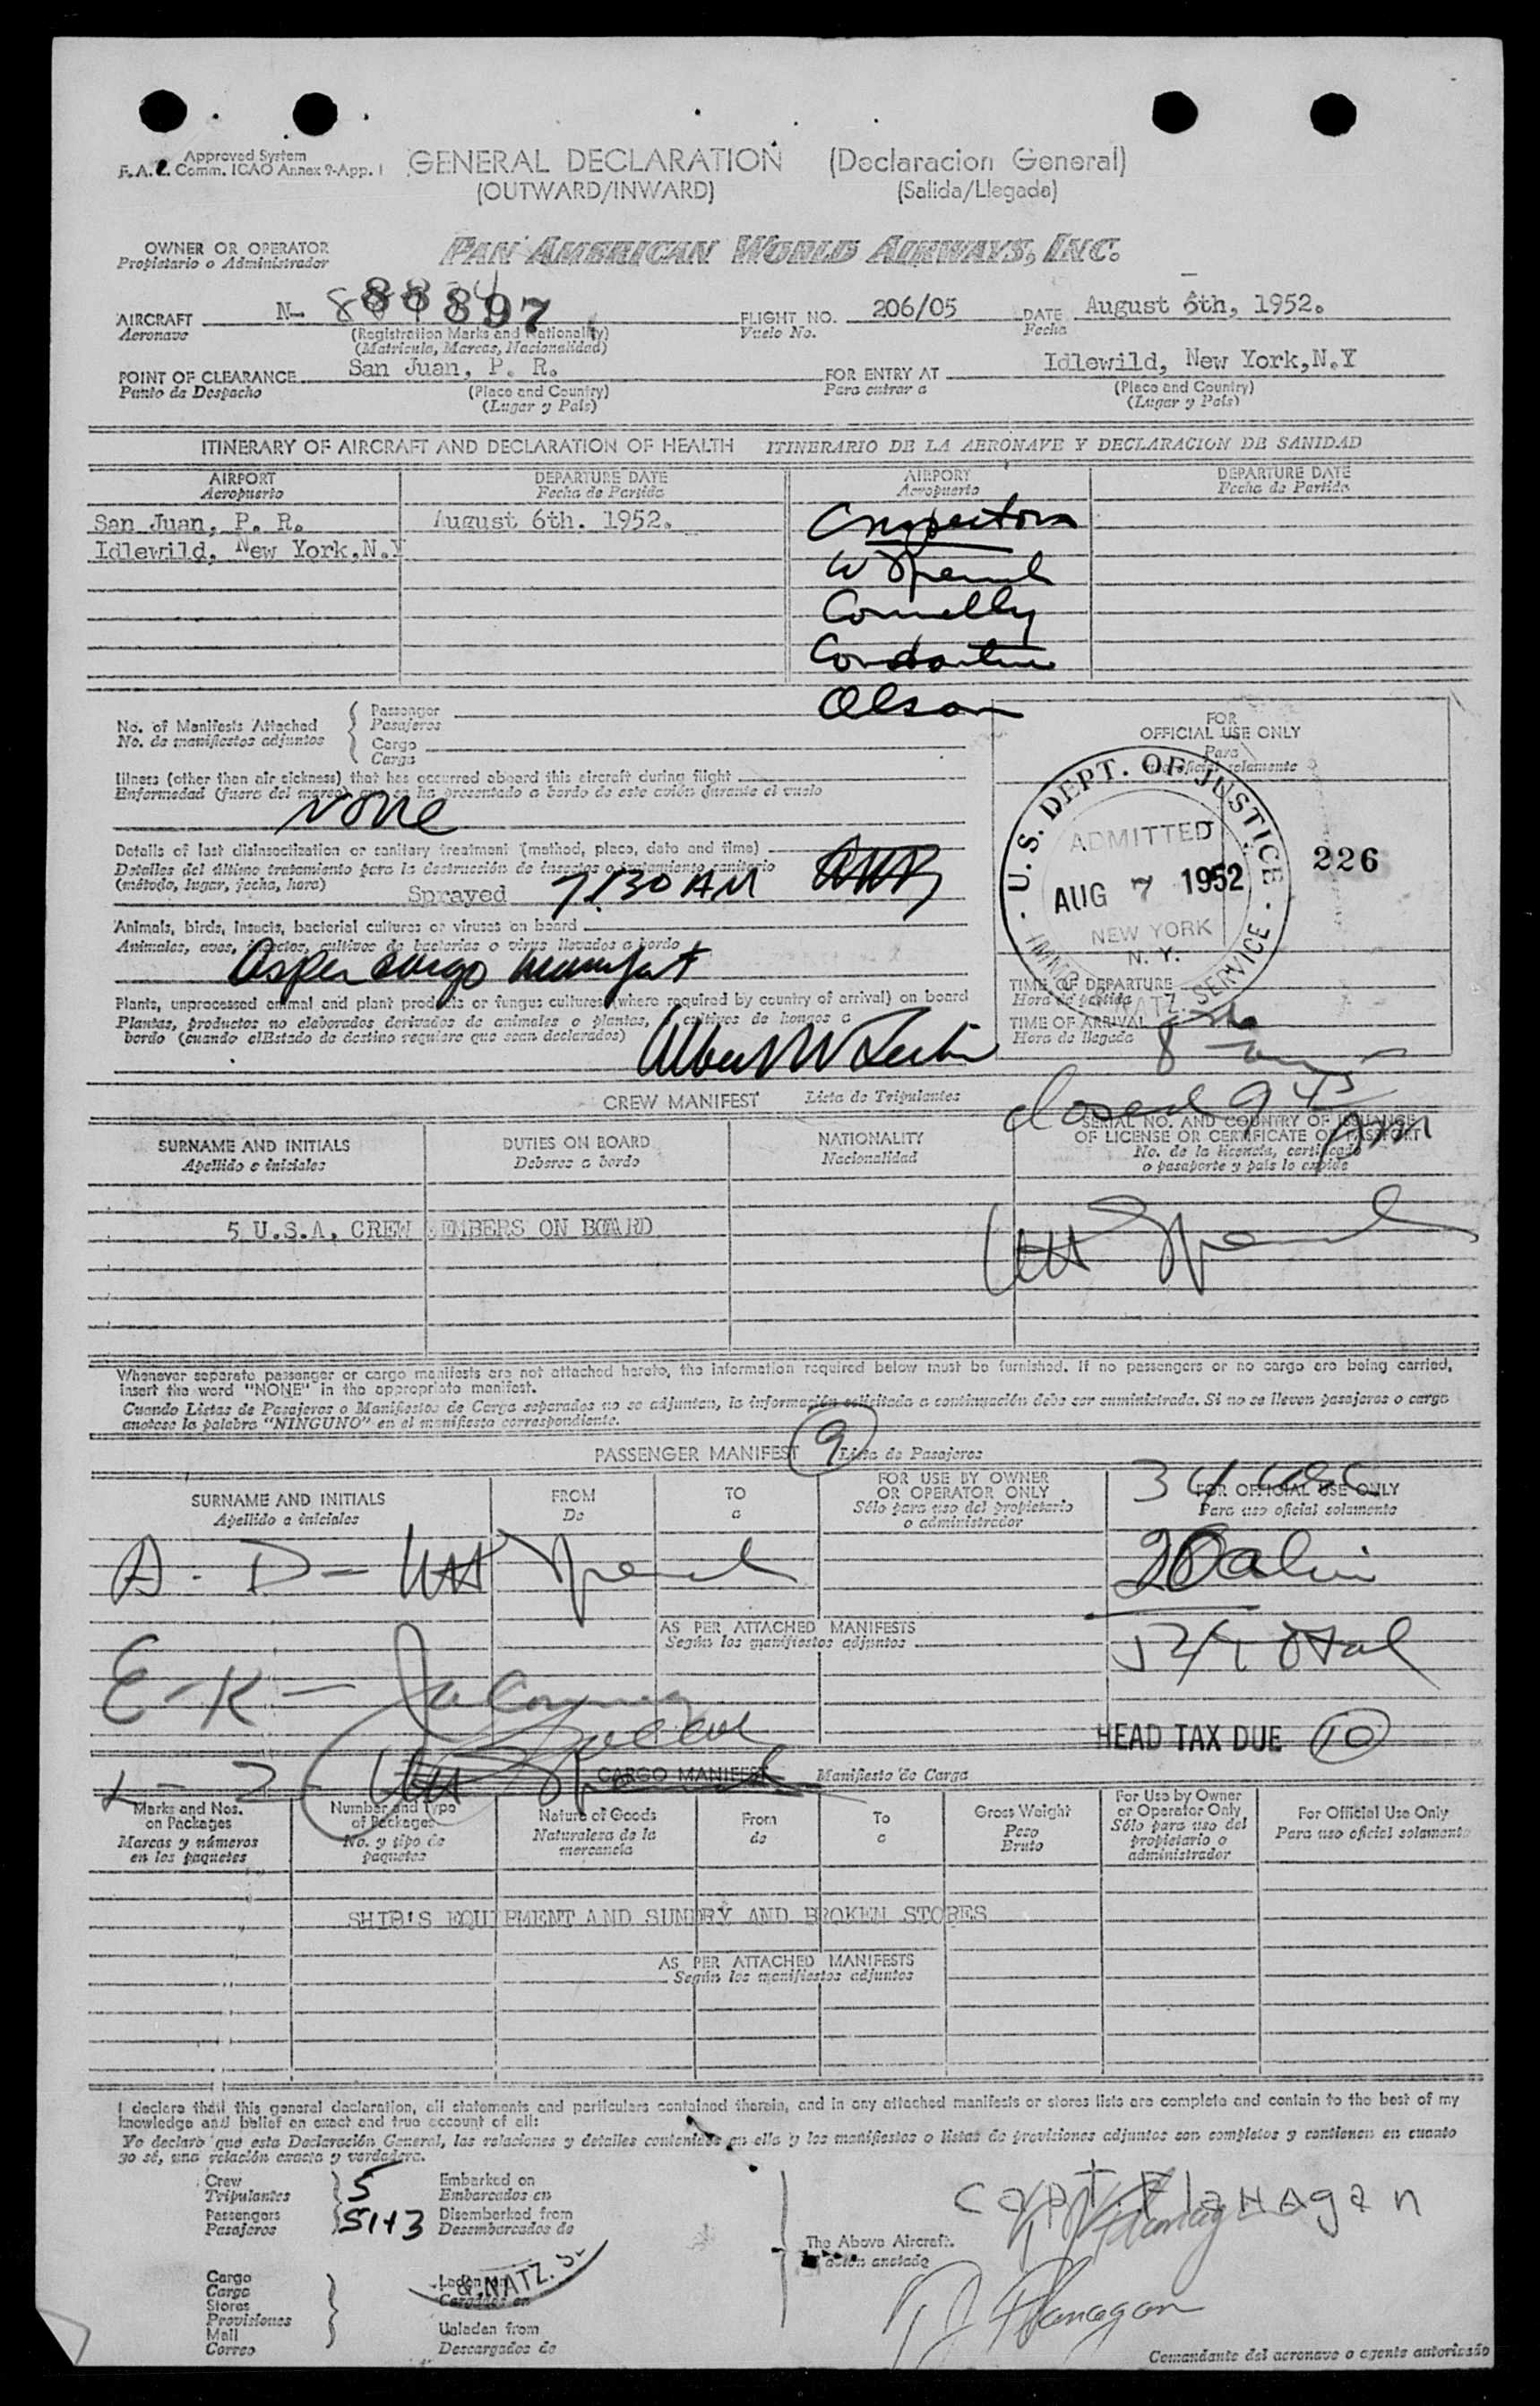 Approved System
F.A.L. Comm. ICAO Annex 9-App. 1
GENERAL DECLARATION (Declaracion General)
(OUTWARD/INWARD) (Salida/Llegada)
OWNER OR OPERATOR
Propietario o Administrador
PAN AMERICAN WORLD AIRWAYS, INC.
AIRCRAFT N- 88897 FLIGHT NO. 206/05 DATE August 6th, 1952.
Aeronave (Registration Marks and Nationality) Vuelo No. Fecha
(Matricula, Marcas, Nacionalidad)
POINT OF CLEARANCE San Juan, P. R. FOR ENTRY AT Idlewild, New York,N.Y
Punto de Despacho (Place and Country) Para entrar a (Place and Country)
(Lugar y País) (Lugar y País)
ITINERARY OF AIRCRAFT AND DECLARATION OF HEALTH ITINERARIO DE LA AERONAVE Y DECLARACION DE SANIDAD
AIRPORT DEPARTURE DATE AIRPORT DEPARTURE DATE
Aeropuerto Fecha de Partida Aeropuerto Fecha de Partida
San Juan, P. R. August 6th. 1952. Inspectors
Idlewild, New York,N.Y
Connelly
Olson
No. of Manifests Attached
No. de manifiestos adjuntos
Passenger
Pasajeros
Cargo
Carga
FOR
OFFICIAL USE ONLY
Para
uso oficial solamente
Illness (other than air sickness) that has occurred aboard this aircraft during flight
Enfermedad (fuera del mareo) que se ha presentado a bordo de este avión durante el vuelo
None
U.S. DEPT. OF JUSTICE
ADMITTED
AUG 7 1952
NEW YORK
N. Y.
IMMIG. & NATZ. SERVICE
226
Details of last disinsectization or sanitary treatment (method, place, date and time)
Detalles del último tratamiento para la destrucción de insectos o tratamiento sanitario
(método, lugar, fecha, hora)
Sprayed 7:30 AM
Animals, birds, insects, bacterial cultures or viruses on board
Animales, aves, insectos, cultivos de bacterias o virus llevados a bordo
As per cargo manifest
Plants, unprocessed animal and plant products or fungus cultures (where required by country of arrival) on board
Plantas, productos no elaborados derivados de animales o plantas, cultivos de hongos a
bordo (cuando el Estado de destino requiere que sean declarados)
TIME OF DEPARTURE
Hora de partida
TIME OF ARRIVAL
Hora de llegada
closed 9 45 AM
CREW MANIFEST Lista de Tripulantes
SURNAME AND INITIALS DUTIES ON BOARD NATIONALITY SERIAL NO. AND COUNTRY OF ISSUANCE
OF LICENSE OR CERTIFICATE OR PASSPORT
Apellido e iniciales Deberes a bordo Nacionalidad No. de la licencia, certificado
o pasaporte y país lo expide
5 U.S.A. CREW MEMBERS ON BOARD
Whenever separate passenger or cargo manifests are not attached hereto, the information required below must be furnished. If no passengers or no cargo are being carried,
insert the word "NONE" in the appropriate manifest.
Cuando Listas de Pasajeros o Manifiestos de Carga separados no se adjuntan, la información solicitada a continuación debe ser suministrada. Si no se lleven pasajeros o carga
anotese la palabra "NINGUNO" en el manifiesto correspondiente.
PASSENGER MANIFEST 9 Lista de Pasajeros
SURNAME AND INITIALS FROM TO FOR USE BY OWNER
OR OPERATOR ONLY FOR OFFICIAL USE ONLY
Apellido e iniciales De a Sólo para uso del propietario
o administrador Para uso oficial solamente
34 USC
A - D -
20 alien
AS PER ATTACHED MANIFESTS
Según los manifiestos adjuntos
54 Total
E - K -
HEAD TAX DUE 10
L - Z -
CARGO MANIFEST Manifiesto de Carga
Marks and Nos.
on Packages
Marcas y números
en los paquetes
Number and Type
of Packages
No. y tipo de
paquetes
Nature of Goods
Naturaleza de la
mercancía
From
de
To
a
Gross Weight
Peso
Bruto
For Use by Owner
or Operator Only
Sólo para uso del
propietario o
administrador
For Official Use Only
Para uso oficial solamente
SHIP'S EQUIPMENT AND SUNDRY AND BROKEN STORES
AS PER ATTACHED MANIFESTS
Según los manifiestos adjuntos
I declare that this general declaration, all statements and particulars contained therein, and in any attached manifests or stores lists are complete and contain to the best of my
knowledge and belief an exact and true account of all:
Yo declaro que esta Declaración General, las relaciones y detalles contenidos en ella y los manifiestos o listas de provisiones adjuntos son completos y contienen en cuanto
yo sé, una relación exacta y verdadera.
Crew
Tripulantes 5
Passengers
Pasajeros 51+3
Embarked on
Embarcados en
Disembarked from
Desembarcados de
Capt. Flanagan
The Above Aircraft.
El avión anotado
Cargo
Carga
Stores
Provisiones
Mail
Correo
Laden on
Cargados en
& NATZ. S
Unladen from
Descargados de
Flanagan
Comandante del aeronave o agente autorizado